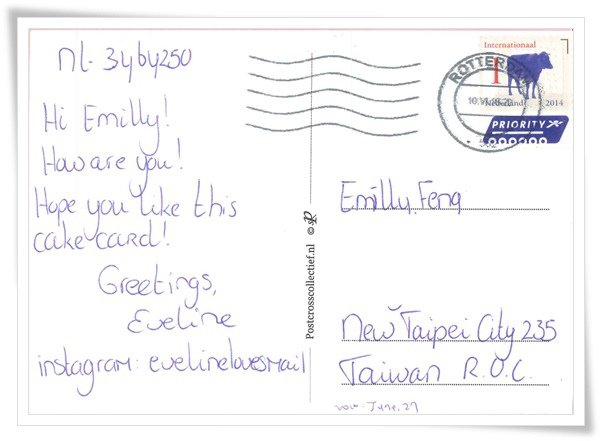 nl-3464250
Hi Emilly!
How are you!
Hope you like this
cake card!
Greetings,
Eveline
instagram: evelinelovesmail
Postcrosscollectief.nl ©
Internationaal
1
Nederland 2014
ROTTERDAM
PRIORITY
Emilly Feng
New Taipei City 235
Taiwan R.O.C.
June.27